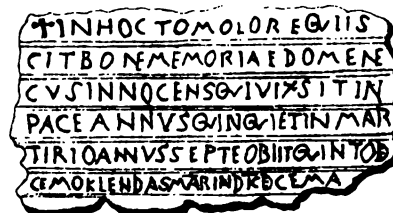 ✝INHOCTOMOLOREQUIIS
CITBONEMEMORIAEDOMENE
CVSINNOCENSQVIVIXSITIN
PACEANNVSQVINQVIETINMAR
TIRIOANNVSSEPTEOBIITQVINTOD
CEMOKLENDASMARINDKDCEMA